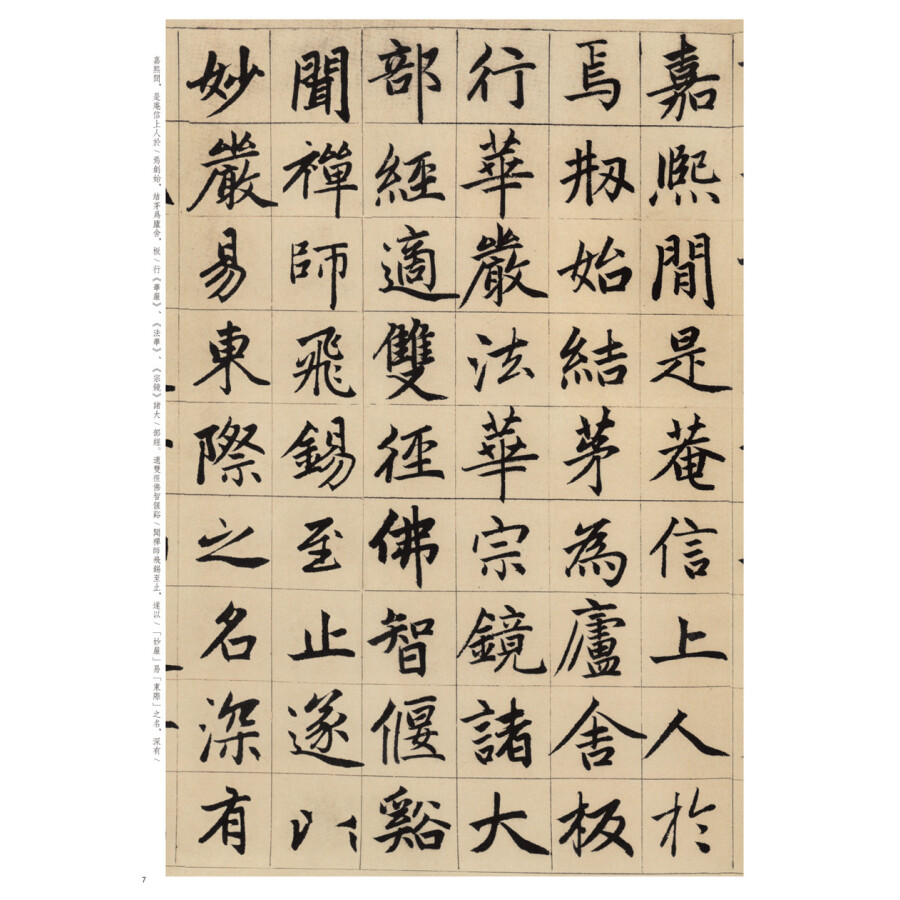 嘉熙間是菴信上人於
焉刱始結茅為廬舍板
行華嚴法華宗鏡諸大
部經適雙徑佛智偃谿
聞禪師飛錫至止遂以
妙嚴易東際之名深有
嘉熙間，是庵信上人於/焉創始，結茅爲廬舍，板/行《華嚴》、《法華》、《宗鏡》諸大/部經。適雙徑佛智偃谿/聞禪師飛錫至止，遂以/「妙嚴」易「東際」之名，深有/
7